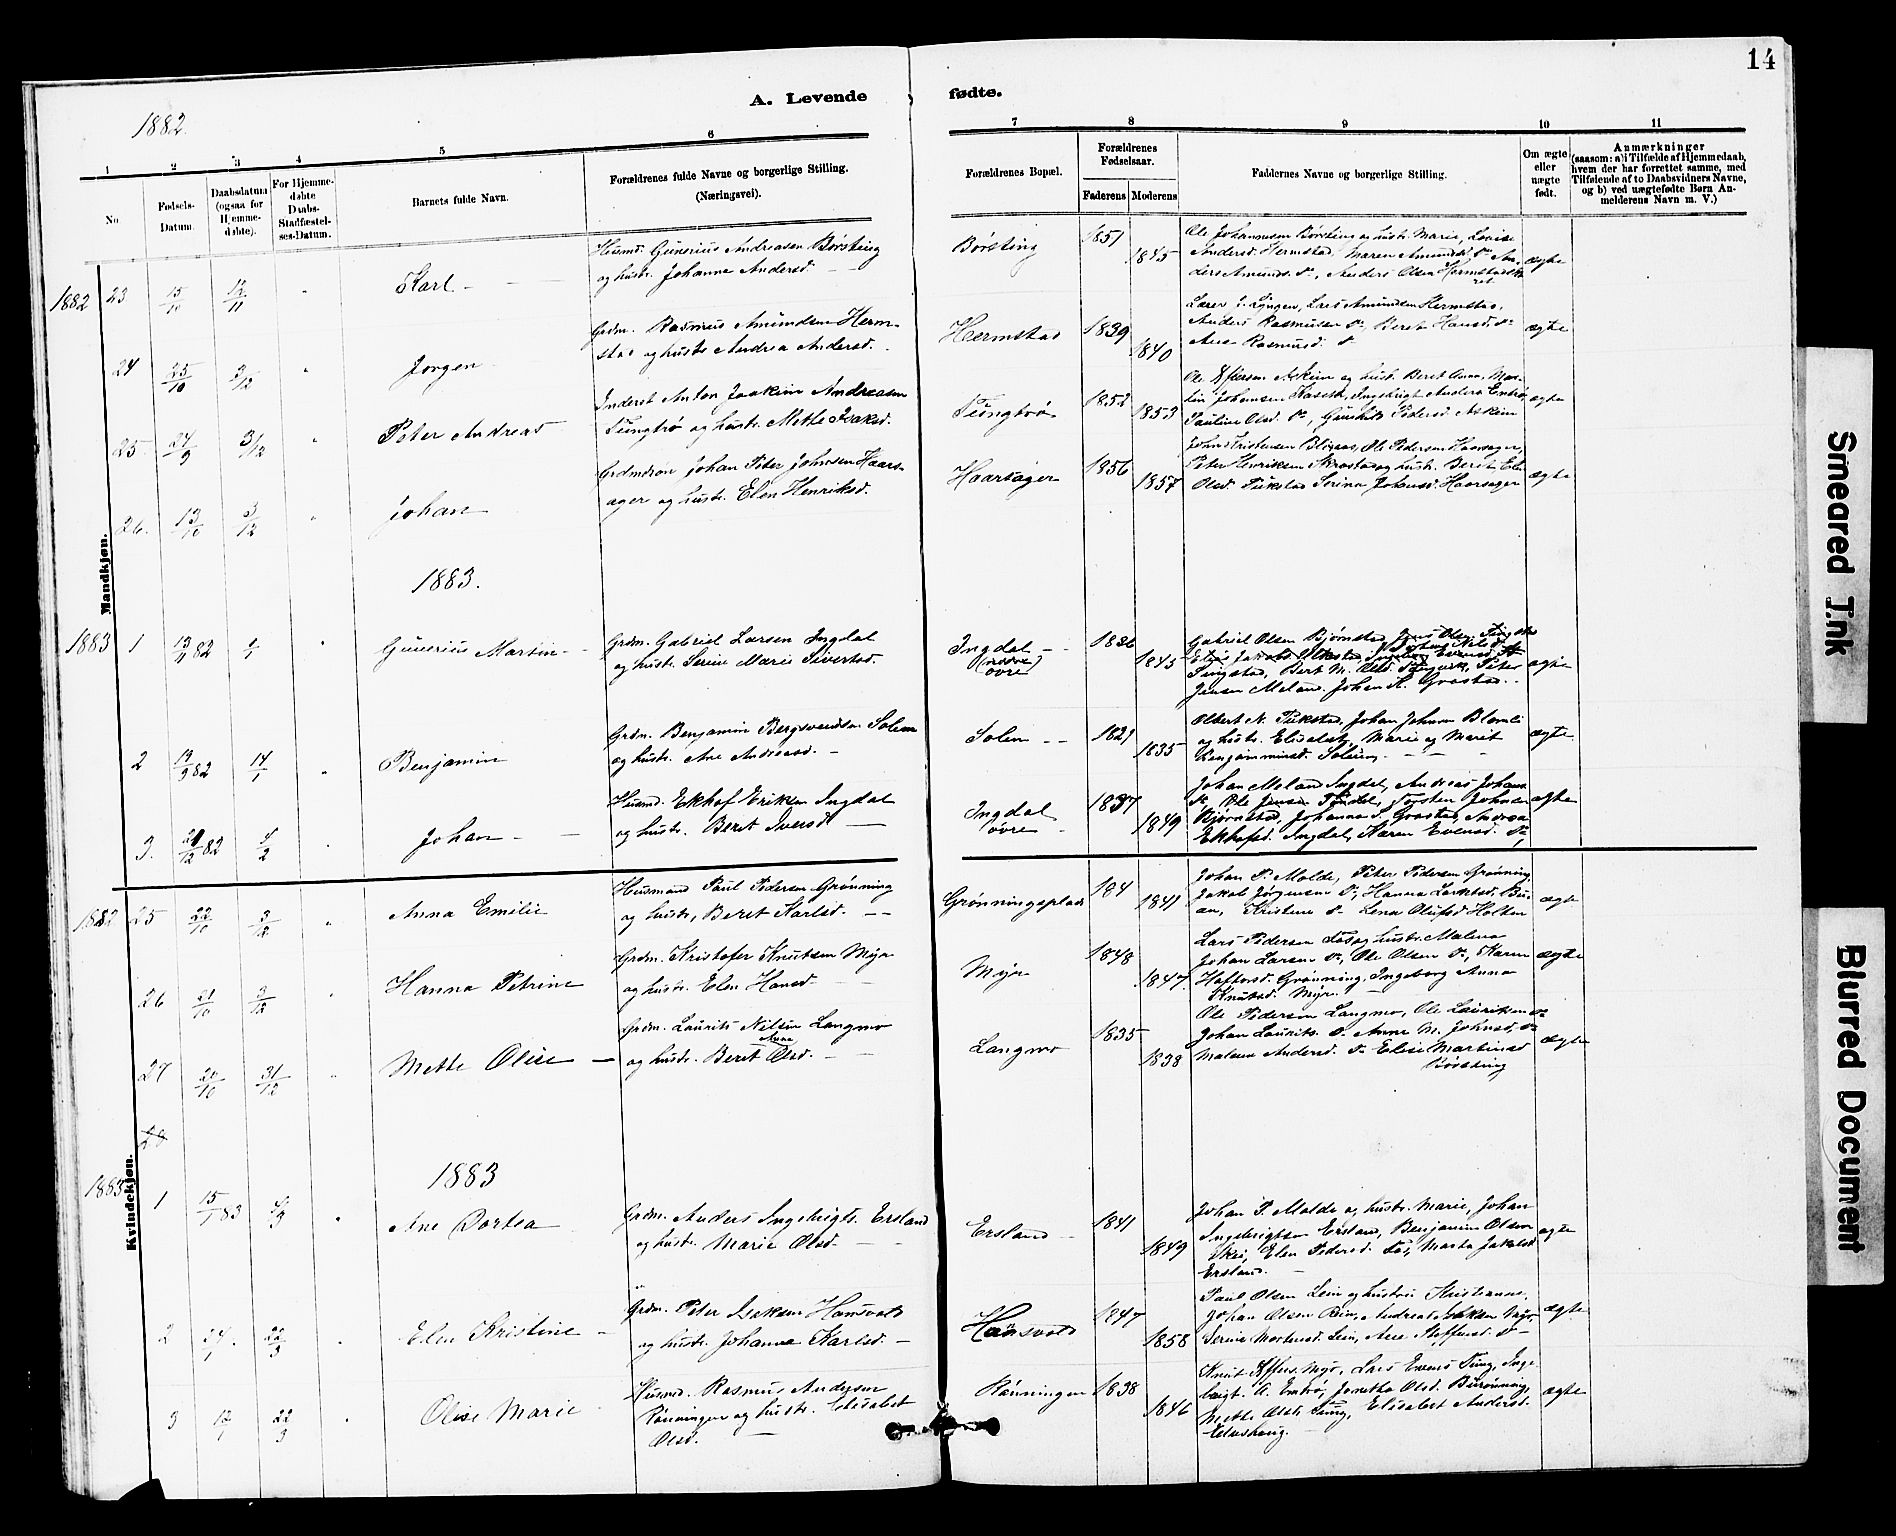 14
A. Levende fødte.
1882.
1 2 3 4 5 6 7 8 9 10 11
No. Fødsels-Datum. Daabsdatum (ogsaa for Hjemmedøbte). For Hjemmedøbte Daabs-Stadfæstelses-Datum. Barnets fulde Navn. Forældrenes fulde Navne og borgerlige Stilling. (Næringsvei). Forældrenes Bopæl. Forældrenes Fødselsaar. Faderens Moderens Faddernes Navne og borgerlige Stilling. Om ægte eller uægte født. Anmærkninger (saasom: a) i Tilfælde af Hjemmedaab, hvem der har forrettet samme, med Tilføiende af to Daabsvidners Navne, og b) ved uægtefødte Børn Anmelderens Navn m. V.)
Mandkjøn.
1882 23 15/10 12/11 Karl
Husmd. Gunerius Andreasen Børsting
og hustr. Johanna Andersd.
Børsting 1851 1845
Ole Johannesen Børsting og hustr. Marie, Lovise
Andersd. Hermstad, Maren Amundsd. do
Anders Olsen
ægte
24 25/10 3/12 Jørgen
Grdm. Rasmus Amundsen Herm-
stad og hustr. Andrea Andersd.
Hermstad 1839 1840
Lærer Lyngen, Lars Amundsen Hermstad,
Anders Rasmusen do, Beret Hansd. do
Ane Rasmusd. do
ægte
25. 24/9 3/12 Peter Andreas
Inderst Anton Joakim Andreasen
Tungtrø og hustr. Mette Isaksd.
Tungtrø 1852 1853
Askim og hust. Beret Anna, Mar-
tin Johansen
Pauline Olsd. do, Gunhild Pedersd. Askim
ægte
26. 13/10 3/12 Johan
Grdmdson Johan Peter Johnsen Haars-
ager og hustr. Elen Henriksd.
Haarsager 1856 1857
John Kristensen Ole Pedersen Haarsager,
Peter Henriksen og hustr. Berit Elen
Olsd. Serina Johnsd. Haarsager
ægte
1883.
1883 1 13/9 82 1/1 Gunerius Martin
Grdm. Gabriel Larsen Ingdal
og hustr. Serine Marie Sivertsd.
Ingdal
øvre
1836 1845
Gabriel Olsen Bjørnstad, Jens Olsen
Bert M. Olsd. Peter
Jensen Meland. Johan K. Grostad.
ægte
2 19/9 82 14/1 Benjamin
Grdm. Benjamin Bergsvendsen Solem
og hustr. Ane Andreasd.
Solem 1821 1835
Olbert N. Johan Johnsen Blomli
og hustr. Elisabet, Marie og Marit
Benjaminsd. Solem
ægte
3. 21/12 82 4/2 Johan
Husmd. Ekhof Eriksen Ingdal
og hustr. Beret Iversd.
Ingdal
øvre
1837 1849
Johan Meland Ingdal, Andreas Johans
do, Ole Jensen Torsten Johnsen
Bjørnstad, Johanna S. Grostad, Andrea
Ekhofsd. Ingdal, Karen Evensd. do,
ægte
Kvindekjøn.
1882 25 22/10 3/12 Anna Emilie
Husmand Paul Pedersen Grønning
og hustr. Beret Karlsd.
Grønningsplads 184 1841
Johan P. Molde, Peter Pedersen Grønning,
Jakob Jørgensen do, Hanna Bu-
an, Kristine do Lena Olufsd. Holten
ægte
26 21/10 3/12 Hanna Petrine
Grdm. Kristofer Knutsen Myr
og hustr. Elen Hansd.
Myr 1848 1847.
Lars Pedersen Løs og hustr. Malena
Johan Larsen do, Ole Olsen do, Karen
Haftorsd. Grønning, Ingeborg Anna
Knutsd. Myr.
ægte
27 20/10 31/12 Mette Olise
Grdm. Laurits Nilsen Langmo
og hustr. Beret Anna Olsd.
Langmo 1835 1838
Ole Pedersen Langmo, Ole Lauritsen do
Johan Laurits. do Anne M. Johnsd. do
Malene Andersd. do Elise Martinsd
Børsting
ægte
28
1883
1883 1 15/1 83 4/3 Ane Dortea
Grdm. Anders Ingebrigts. Ersland
og hustr. Marie Olsd.
Ersland 1841 1849
Johan P. Molde og hustr. Marie, Johan
Ingebrigtsen Ersland, Benjamin Olsen
Skei, Elen Pedersd. Løs, Marta Jakobsd
Ersland.
ægte
2 24/1 22/3 Elen Kristine
Grdm. Peter Isaksen Hamsvold
og hustr. Johanna Karlsd.
Hamsvold 1847 1858
Paul Olsen Lein og hustru Kristianna,
Johan Olsen Andreas Isaksen Myr,
Serine Mortensd. Lein, Ane Steffensd. do
ægte
3 17/1 22/3 Olise Marie
Husmd. Rasmus Andersen
Rønningen og hustr. Elisabet
Olsd.
Rønningen 1838 1846
Knut Myr, Lars Evens Tung, Inge-
brigt A. Embrø, Jonetta Olsd. Burønning,
Mette Olsd. Tung, Elisabet Andersd.
ægte
Smeared Ink
Blurred Document